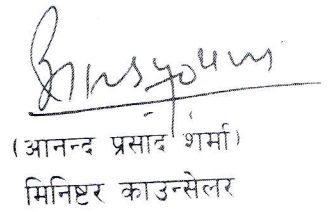 (आनन्द प्रसाद शर्मा)
मिनिष्टर काउन्सेलर